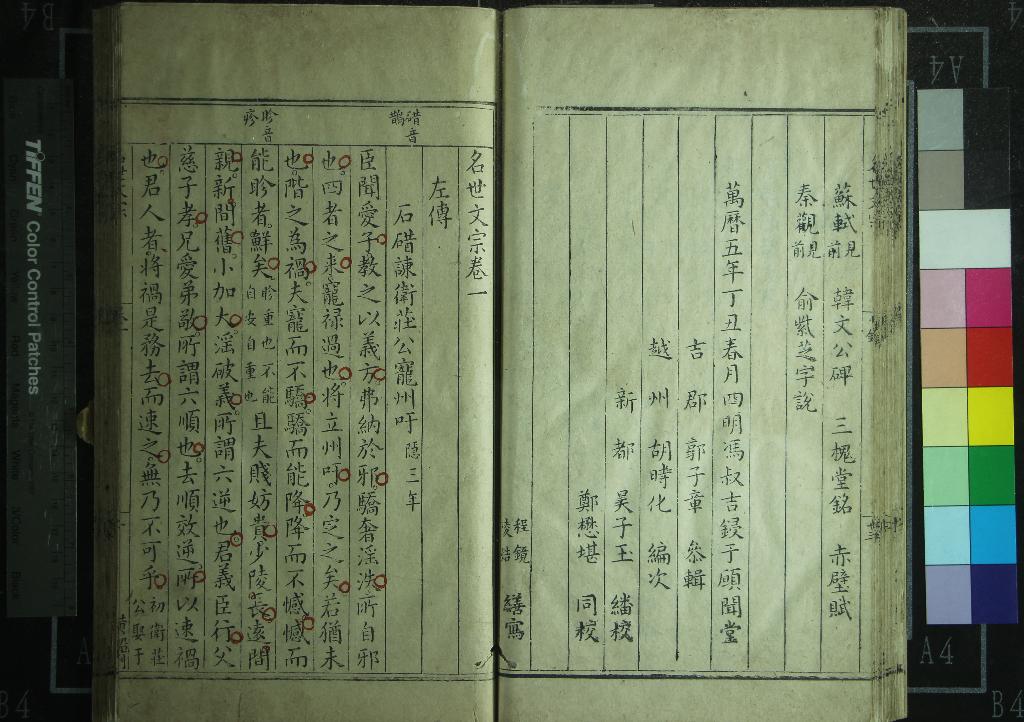 蘇軾見前 韓文公碑 三槐堂銘 赤壁賦
秦觀見前 俞紫芝字說
萬曆五年丁丑春月四明馮叔吉鋟于願聞堂
吉郡郭子章叅輯
越州胡時化編次
新都吴子玉繙校
鄭懋堪同校
程鏡
繕寫
名世文宗卷一
左傳
石碏諫衛莊公寵州吁隱三年
碏音
鵲
臣聞愛子教之以義方弗納於邪驕奢淫泆所自邪
也四者之来寵禄過也将立州吁乃定之矣若猶未
也階之為禍夫寵而不驕驕而能降降而不憾憾而
能眕者鮮矣眕重也不能自安自重也且夫賤妨貴少陵長遠間
眕音
疹
親新間舊小加大淫破義所謂六逆也君義臣行父
慈子孝兄愛弟敬所謂六順也去順效逆所以速禍
也君人者将禍是務去而速之無乃不可乎初衛莊公娶于
TIFFEN Color Control Patches
A4
A4
B4
B4
B4